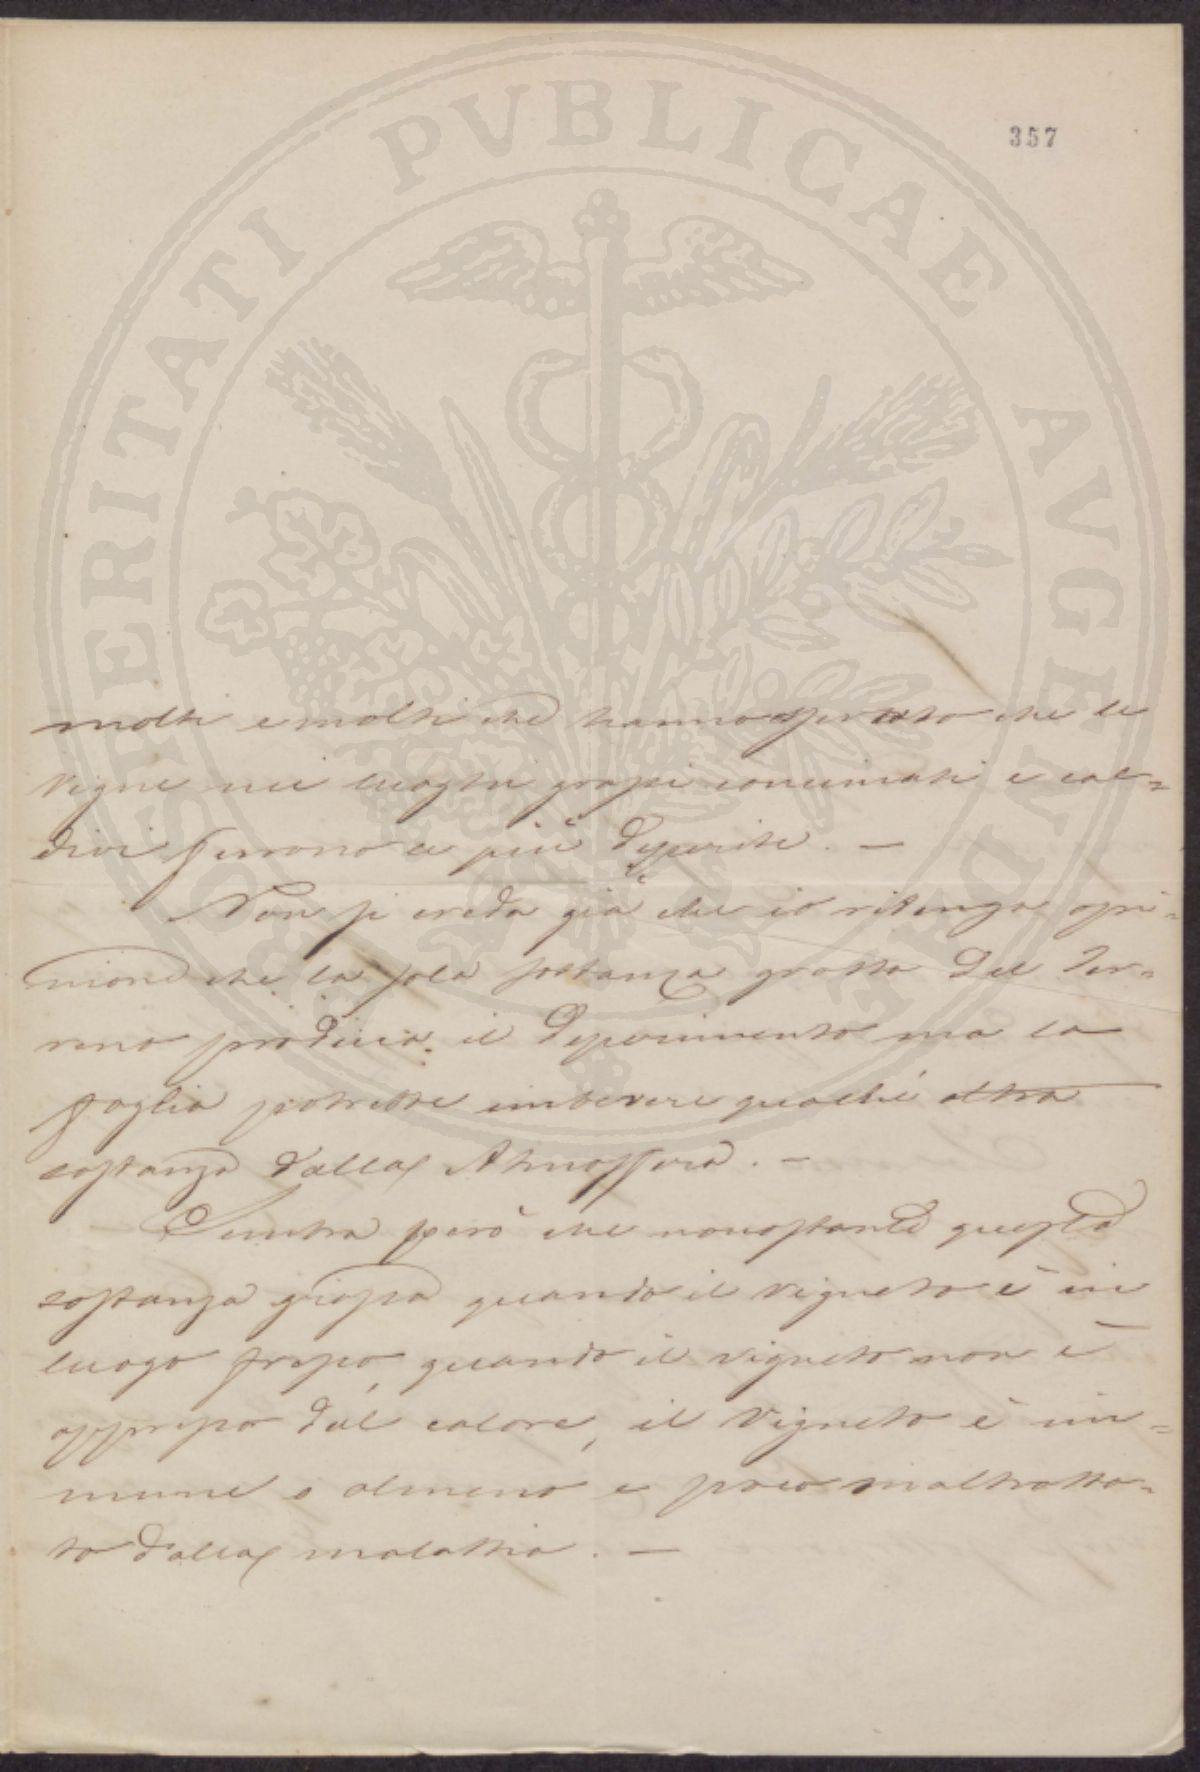 PROSPERITATI PVBLICAE AVGENDAE
357
molti e molti che hanno sperato che le
vigne nei luoghi grassi concimati e cal=
divi furono le più deperite. —
Non si creda già che io ritenga opi=
nione che la sola sostanza grassa del ter=
reno produca il deperimento ma la
foglia potrebbe imbevere qualche altra
sostanza dalla Atmosfera. —
Sembra però che nonostante questa
sostanza grassa quando il vigneto è in
luogo fresco, quando il vigneto non è
oppresso dal calore, il vigneto è im=
mune o almeno è poco maltratta=
to dalla malattia. —